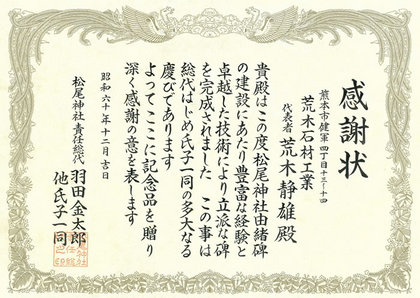 感謝状
熊本市健軍四丁目十三ー十四
荒木石材工業
代表者 荒木静雄殿
貴殿はこの度松尾神社由緒碑
の建設にあたり豊富な経験と
卓越した技術により立派な碑
を完成されました この事は
総代はじめ氏子一同の多大なる
慶びであります
よってここに記念品を贈り
深く感謝の意を表します
昭和六十年十二月吉日
松尾神社責任総代 羽田金太郎
他氏子一同